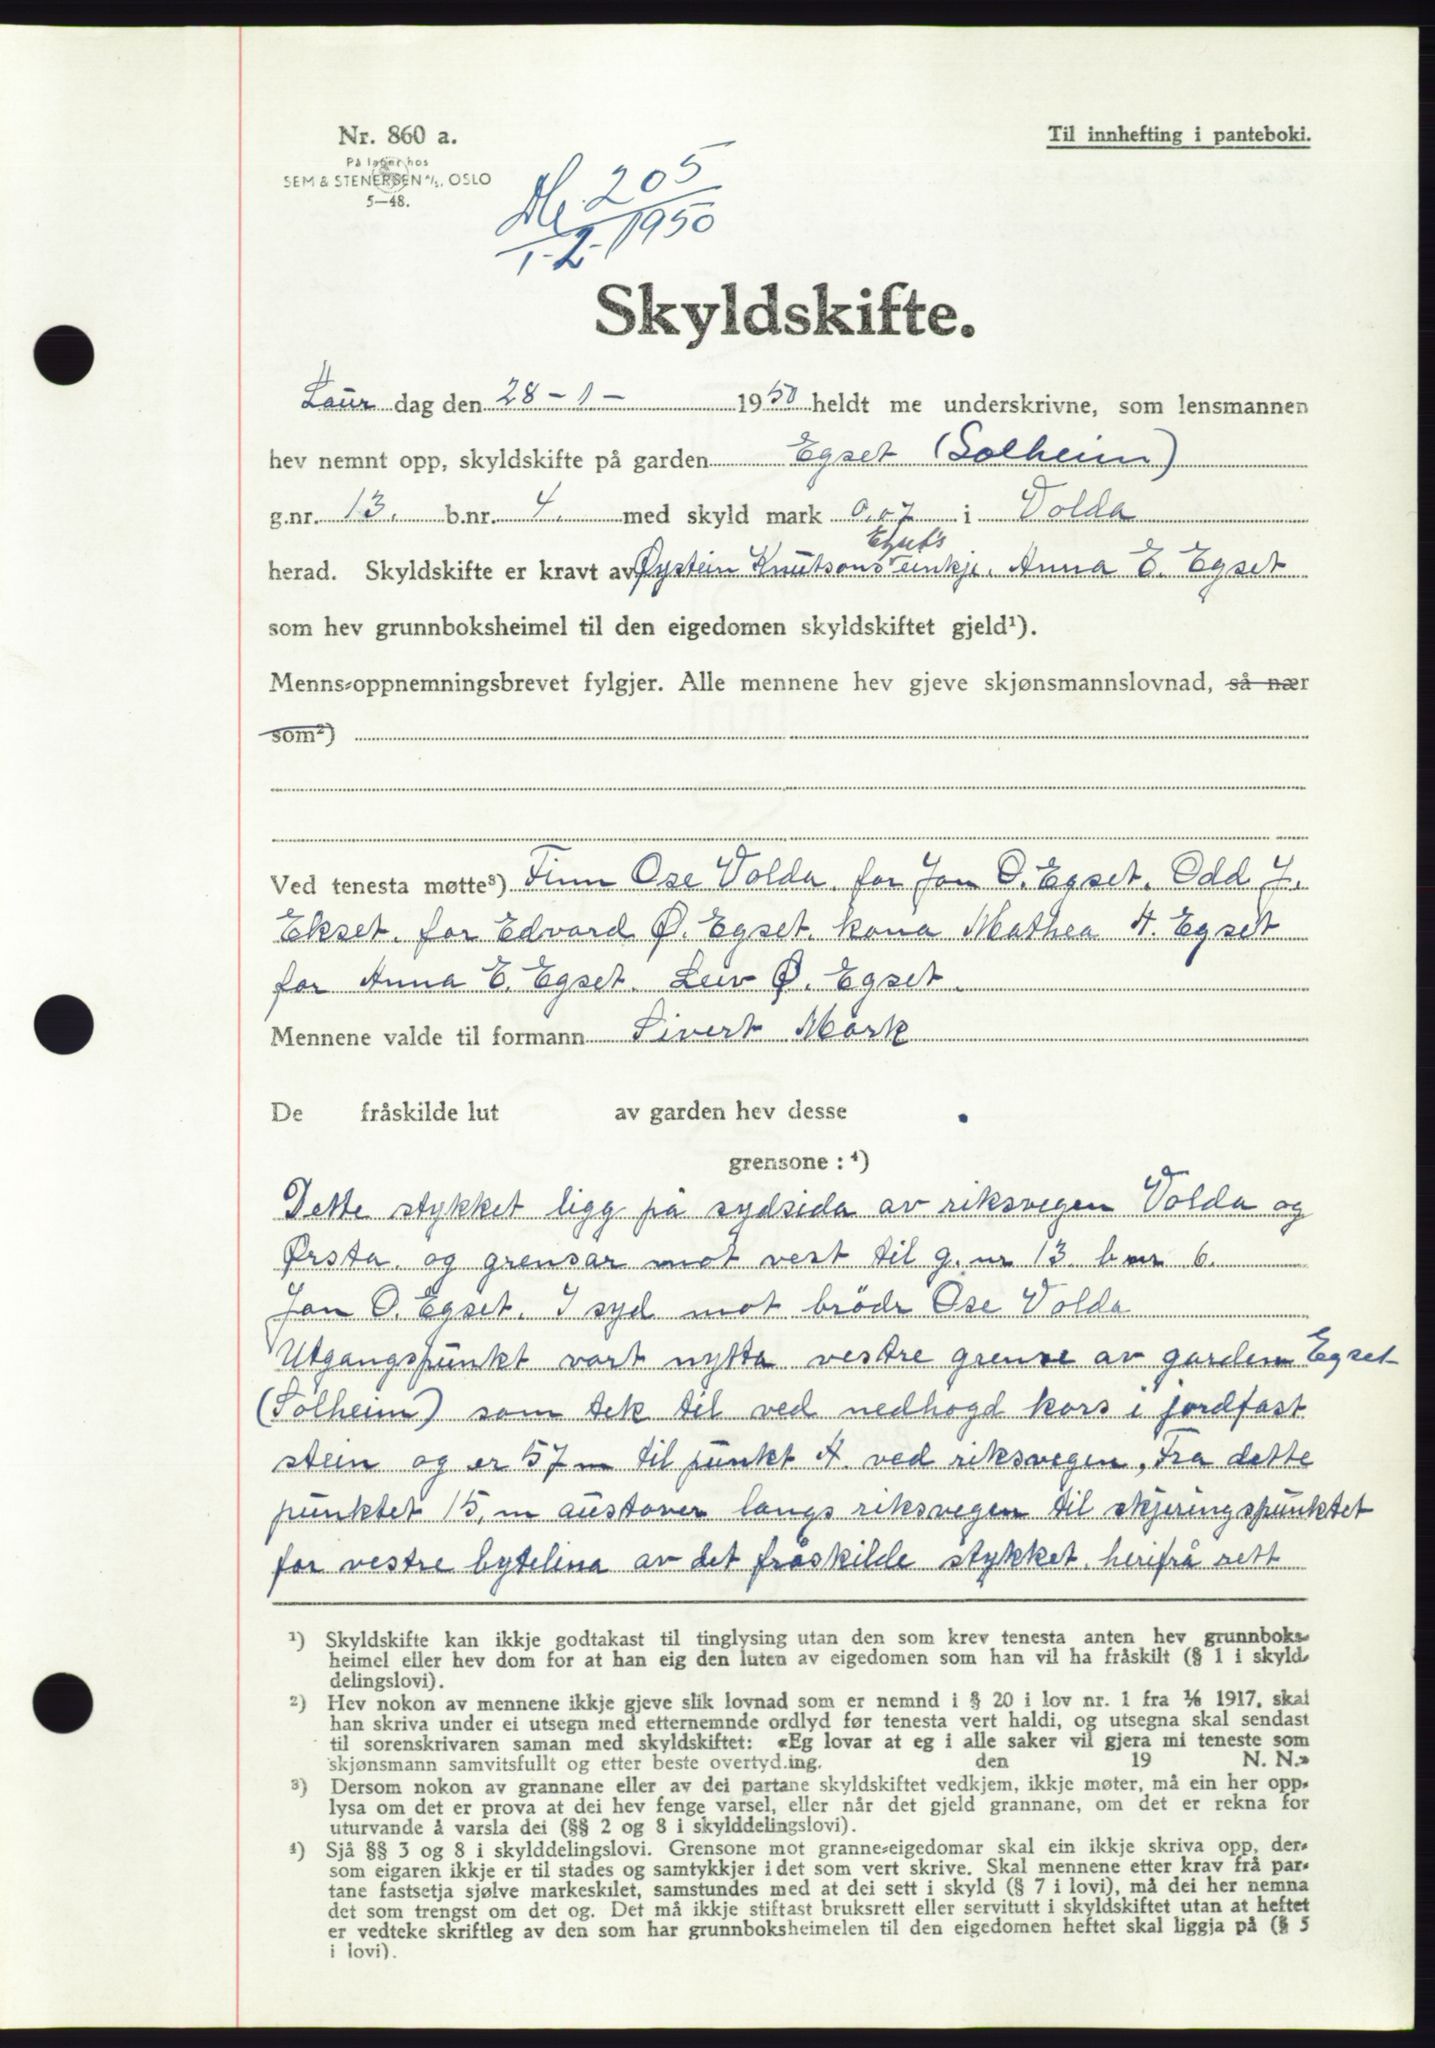 Nr. 860 a.
På lager hos
SEM & STENERSEN A/S, OSLO
5—48.
Til innhefting i panteboki.
205
1-2-1950
Skyldskifte.
Laur dag den 28 - 1 - 1950 heldt me underskrivne, som lensmannen
hev nemnt opp, skyldskifte på garden Egset (Solheim)
g.nr. 13. b.nr. 4. med skyld mark 0,07 i Volda
herad. Skyldskifte er kravt av Øystein Knutsons Egset's einkje. Anna E. Egset
som hev grunnboksheimel til den eigedomen skyldskiftet gjeld¹).
Menns-oppnemningsbrevet fylgjer. Alle mennene hev gjeve skjønsmannslovnad, så nær
som²)
Ved tenesta møtte³) Finn Ose Volda. for Jon O. Egset. Odd J.
Ekset. for Edvard Ø. Egset. kona Mathea A. Egset
for Anna E. Egset. Leiv Ø. Egset.
Mennene valde til formann Sivert Mork
De fråskilde lut av garden hev desse
grensone : ⁴)
Dette stykket ligg på sydsida av riksvegen Volda og
Ørsta. og grensar mot vest til g. nr 13. b nr 6.
Jon O. Egset. I syd mot brödr Ose Volda
Utgangspunkt vart nytta vestre grense av garden Egset
(Solheim) som tek til ved nedhogd kors i jordfast
stein og er 57 m til punkt A. ved riksvegen, Fra dette
punktet 15, m austover langs riksvegen til skjeringspunktet
for vestre bytelina av det fråskilde stykket. herifrå rett
¹) Skyldskifte kan ikkje godtakast til tinglysing utan den som krev tenesta anten hev grunnboks-
heimel eller hev dom for at han eig den luten av eigedomen som han vil ha fråskilt (§ 1 i skyld-
delingslovi).
²) Hev nokon av mennene ikkje gjeve slik lovnad som er nemnd i § 20 i lov nr. 1 fra ⅙ 1917, skal
han skriva under ei utsegn med etternemnde ordlyd før tenesta vert haldi, og utsegna skal sendast
til sorenskrivaren saman med skyldskiftet: «Eg lovar at eg i alle saker vil gjera mi teneste som
skjønsmann samvitsfullt og etter beste overtyding. den 19 N. N.»
³) Dersom nokon av grannane eller av dei partane skyldskiftet vedkjem, ikkje møter, må ein her opp-
lysa om det er prova at dei hev fenge varsel, eller når det gjeld grannane, om det er rekna for
uturvande å varsla dei (§§ 2 og 8 i skylddelingslovi).
⁴) Sjå §§ 3 og 8 i skylddelingslovi. Grensone mot granne-eigedomar skal ein ikkje skriva opp, der-
som eigaren ikkje er til stades og samtykkjer i det som vert skrive. Skal mennene etter krav frå par-
tane fastsetja sjølve markeskilet, samstundes med at dei sett i skyld (§ 7 i lovi), må dei her nemna
det som trengst om det og. Det må ikkje stiftast bruksrett eller servitutt i skyldskiftet utan at heftet
er vedteke skriftleg av den som har grunnboksheimelen til den eigedomen heftet skal liggja på (§ 5
i lovi).